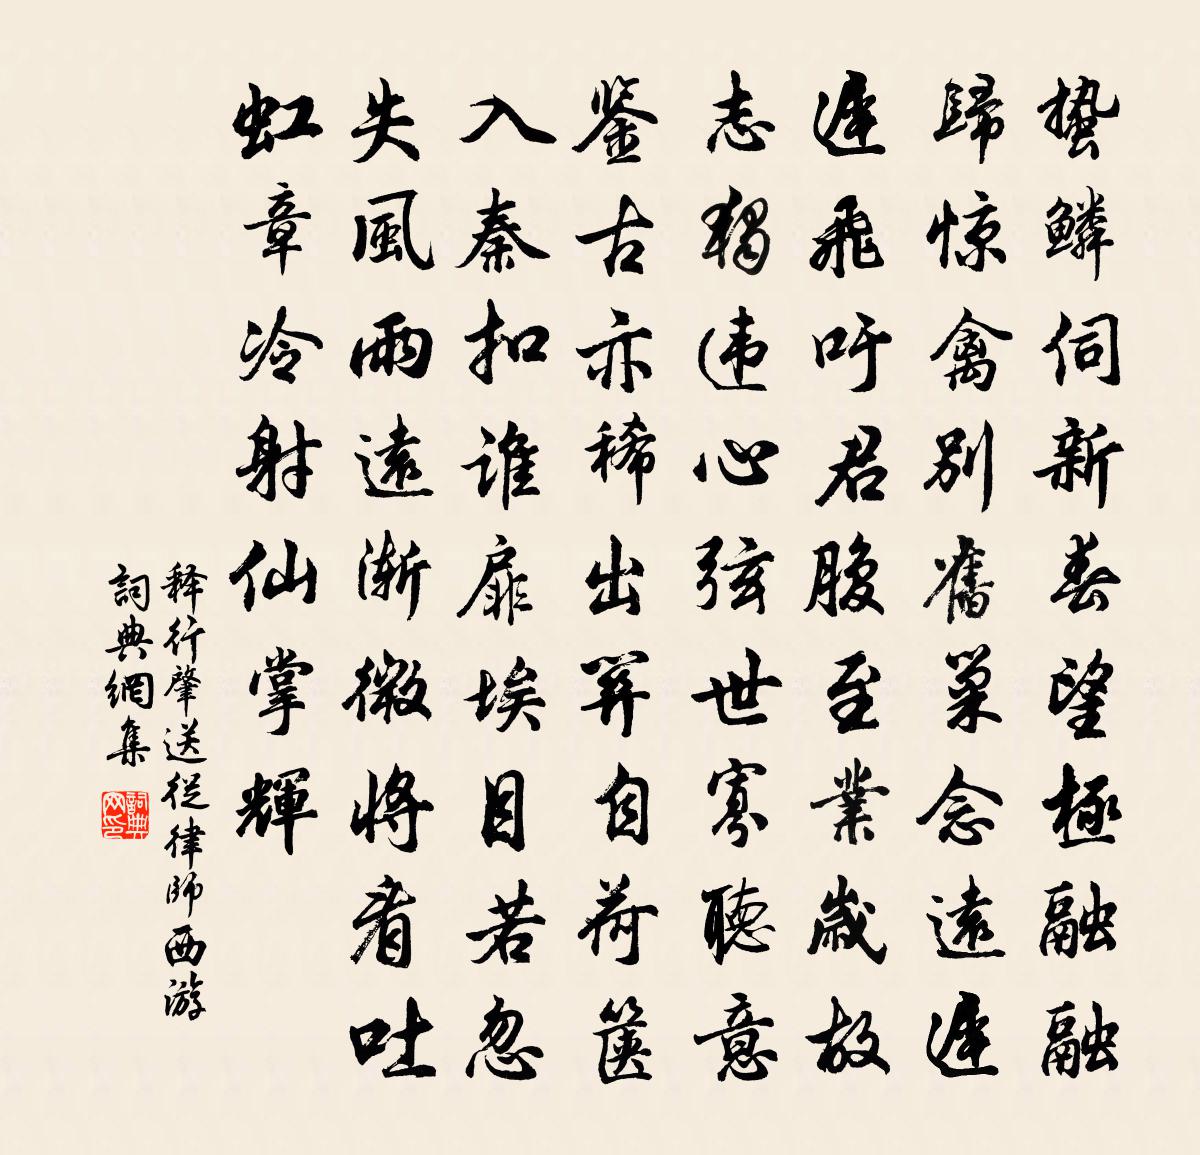 蛰鳞伺新春望極融融
歸惊禽別舊巢念遠遲
遲飛吁君腹至業歲故
志獨违心弦世寡聽意
鉴古亦稀出關自荷箧
入秦扣谁扉埃目若忽
失風雨遠漸微將看吐
虹章冷射仙掌輝
释行肇送從律師西游
詞典網集
詞典网印